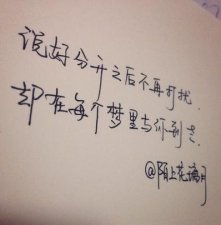 说好分开之后不再打扰
却在每个梦里与你到老
@陌上花满月